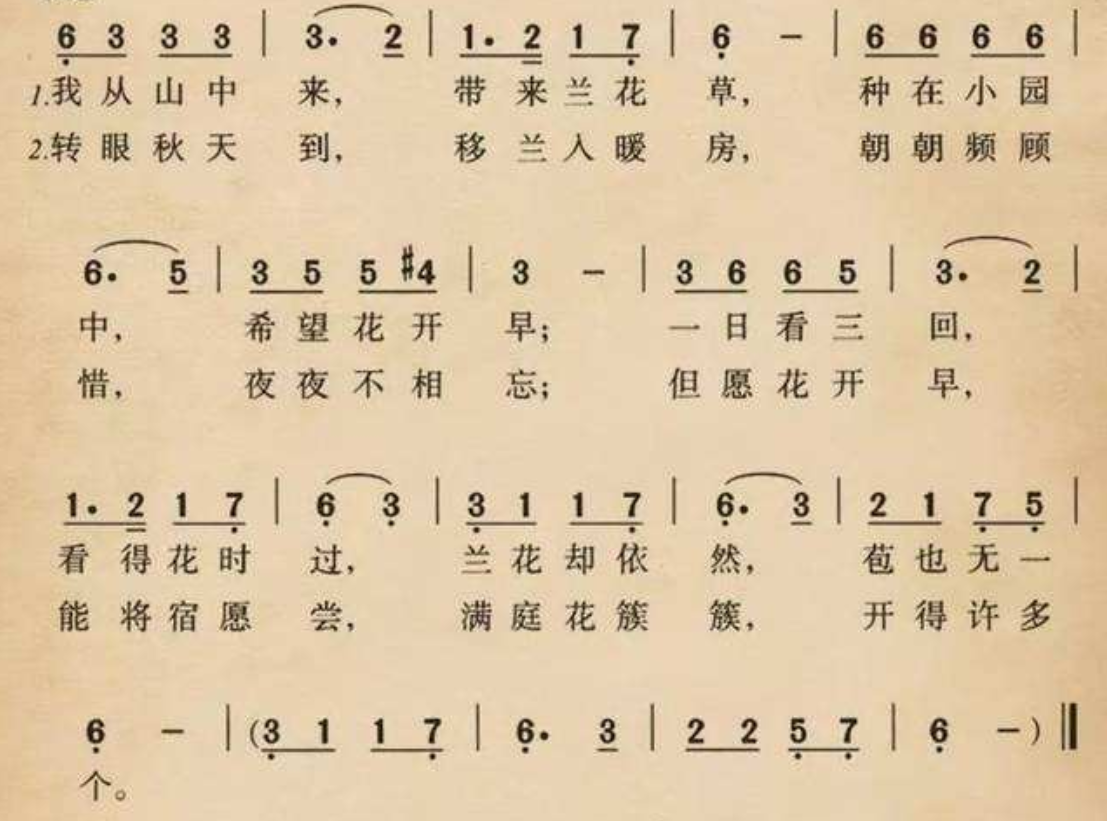 6̣ 3 3 3 | 3· 2 | 1· 2 1 7̣ | 6̣ – | 6 6 6 6 |
1.我从山中 来, 带来兰花 草, 种在小园
2.转眼秋天 到, 移兰入暖 房, 朝朝频顾
6· 5 | 3 5 5 #4 | 3 – | 3 6 6 5 | 3· 2 |
中, 希望花开 早; 一日看三 回,
惜, 夜夜不相 忘; 但愿花开 早,
1· 2 1 7̣ | 6̣ 3̣ | 3̣ 1 1 7̣ | 6̣· 3 | 2 1 7̣ 5̣ |
看得花时 过, 兰花却依 然, 苞也无一
能将宿愿 尝, 满庭花簇 簇, 开得许多
6̣ – | (3̣ 1 1 7̣ | 6̣· 3 | 2 2 5̣ 7̣ | 6̣ –) ‖
个。